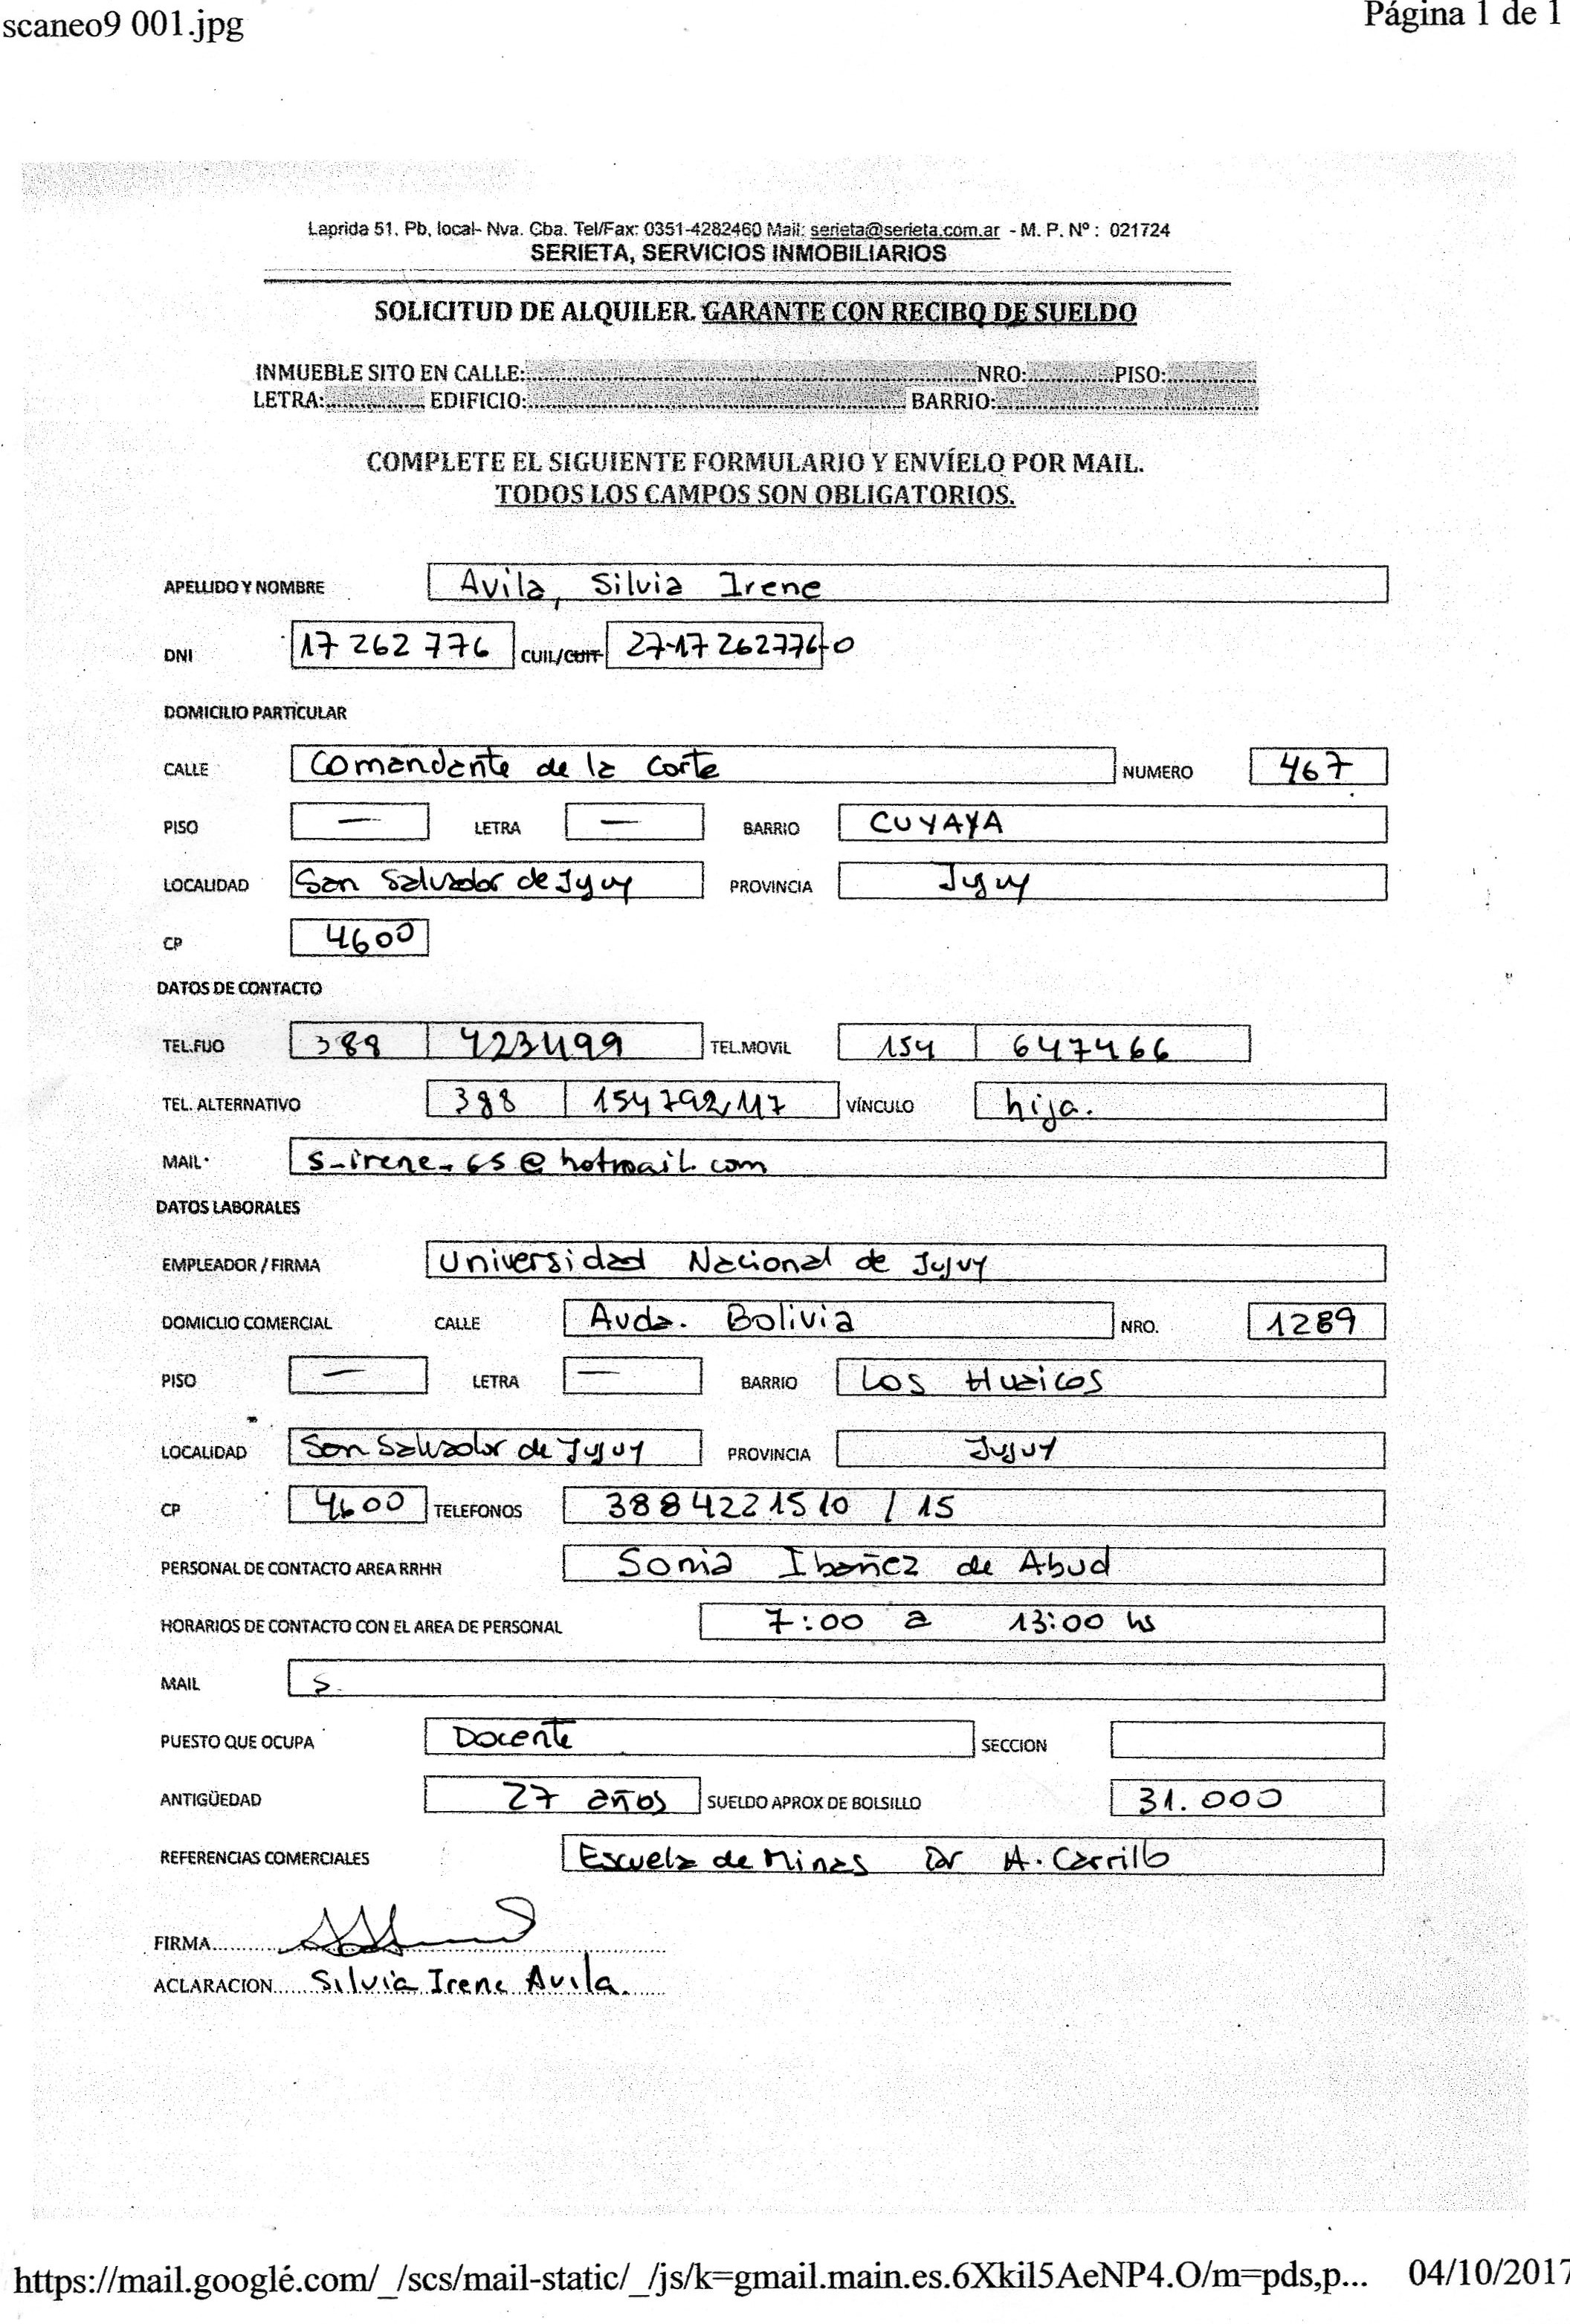 scaneo9 001.jpg Página 1 de 1
Laprida 51. Pb, local- Nva. Cba. Tel/Fax: 0351-4282460 Mail: serieta@serieta.com.ar - M. P. Nº : 021724
SERIETA, SERVICIOS INMOBILIARIOS
SOLICITUD DE ALQUILER. GARANTE CON RECIBO DE SUELDO
INMUEBLE SITO EN CALLE: NRO: PISO:
LETRA: EDIFICIO: BARRIO:
COMPLETE EL SIGUIENTE FORMULARIO Y ENVÍELO POR MAIL.
TODOS LOS CAMPOS SON OBLIGATORIOS.
APELLIDO Y NOMBRE Avila, Silvia Irene
DNI 17 262 776 CUIL/CUIT 27-17 262776-0
DOMICILIO PARTICULAR
CALLE Comandante de la Corte NUMERO 467
PISO — LETRA — BARRIO CUYAYA
LOCALIDAD San Salvador de Jujuy PROVINCIA Jujuy
CP 4600
DATOS DE CONTACTO
TEL.FIJO 388 423499 TEL.MOVIL 154 647466
TEL. ALTERNATIVO 388 154792117 VÍNCULO hija.
MAIL s_irene_65@hotmail.com
DATOS LABORALES
EMPLEADOR / FIRMA Universidad Nacional de Jujuy
DOMICLIO COMERCIAL CALLE Avda. Bolivia NRO. 1289
PISO — LETRA — BARRIO Los Huaicos
LOCALIDAD San Salvador de Jujuy PROVINCIA Jujuy
CP 4600 TELEFONOS 3884221510 / 15
PERSONAL DE CONTACTO AREA RRHH Sonia Ibañez de Abud
HORARIOS DE CONTACTO CON EL AREA DE PERSONAL 7:00 a 13:00 hs
MAIL s.
PUESTO QUE OCUPA Docente SECCION
ANTIGÜEDAD 27 años SUELDO APROX DE BOLSILLO 31.000
REFERENCIAS COMERCIALES Escuela de Minas Dr H. Carrillo
FIRMA
ACLARACION Silvia Irene Avila.
https://mail.google.com/_/scs/mail-static/_/js/k=gmail.main.es.6Xkil5AeNP4.O/m=pds,p... 04/10/2017